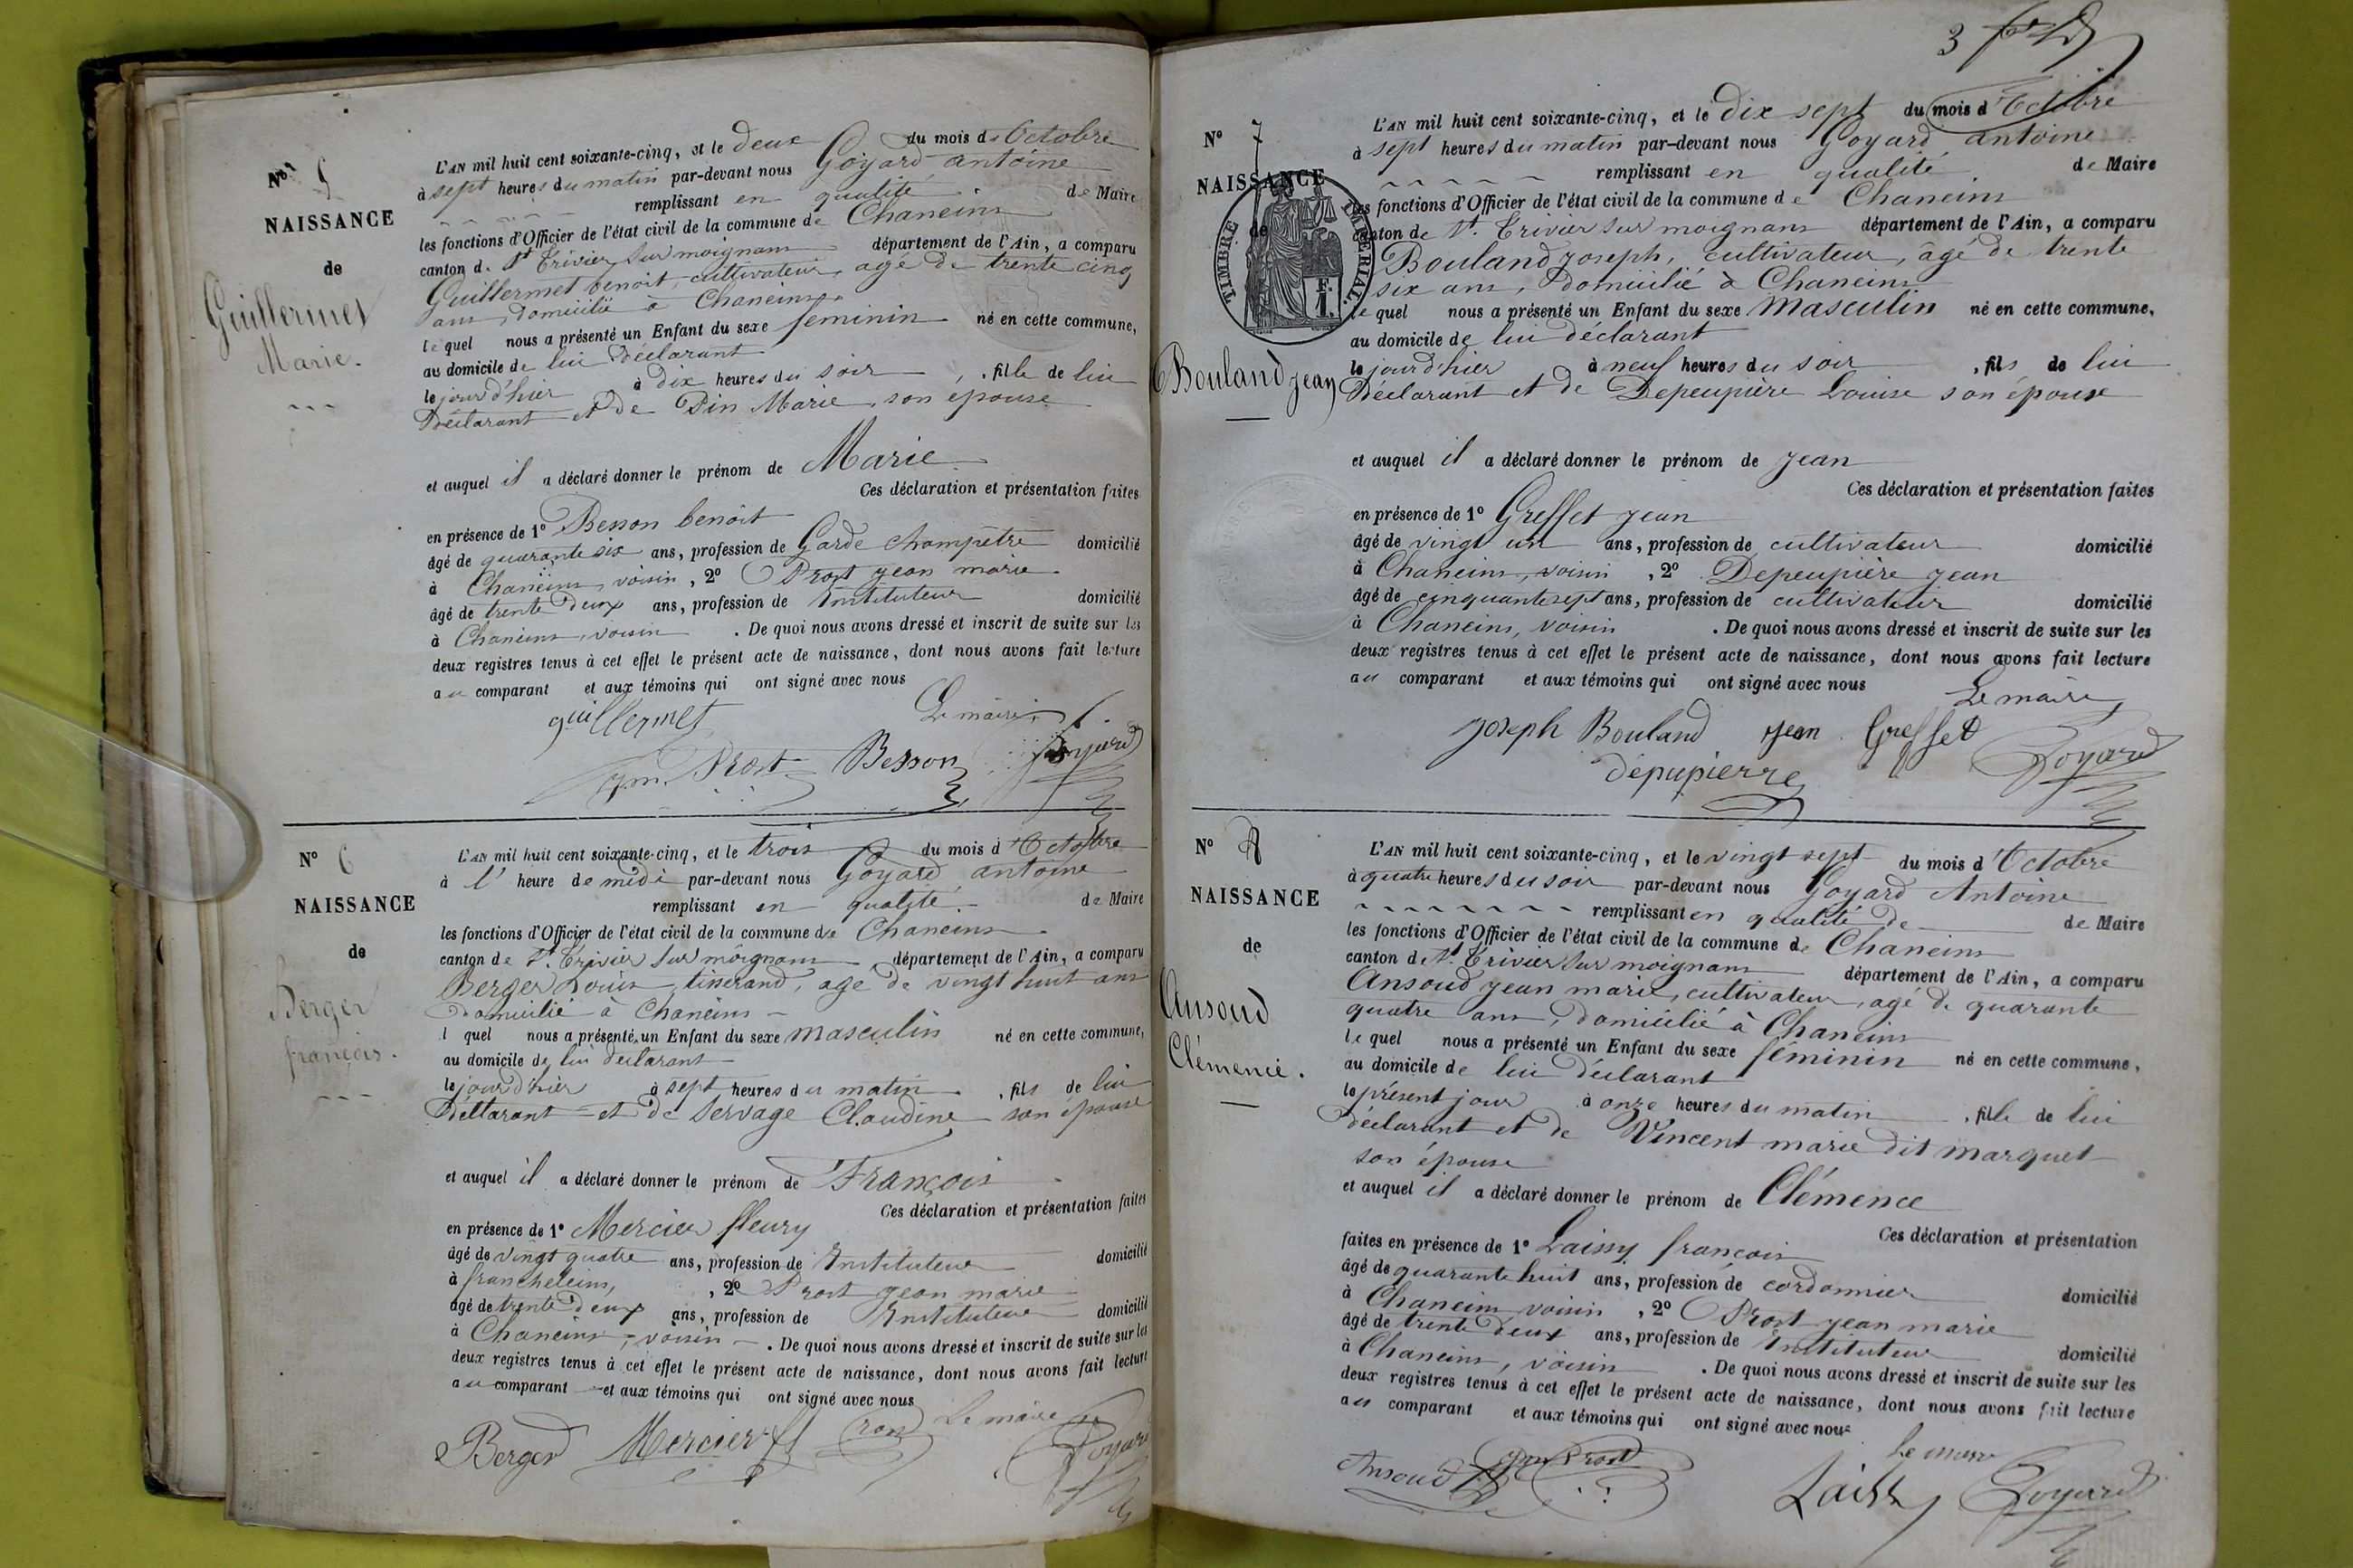 N° 5
NAISSANCE
de
Guillermet
Marie.
L'AN mil huit cent soixante-cinq, et le deux du mois d'Octobre
à sept heures du matin par-devant nous Goyard antoine
remplissant en qualité de Maire
les fonctions d'Officier de l'état civil de la commune de Chaneins
canton de St Trivier sur moignans département de l'Ain, a comparu
Guillermet benoit, cultivateur, agé de trente cinq
ans, domicilié à Chaneins
lequel nous a présenté un Enfant du sexe féminin né en cette commune,
au domicile de lui déclarant
le jour d'hier à dix heures du soir, fille de lui
Déclarant et de Pin Marie, son épouse
et auquel il a déclaré donner le prénom de Marie
Ces déclaration et présentation faites
en présence de 1° Besson benoit
âgé de quarante six ans, profession de Garde champêtre domicilié
à Chaneins, voisin, 2° Prost jean marie
âgé de trente deux ans, profession de Instituteur domicilié
à Chaneins, voisin. De quoi nous avons dressé et inscrit de suite sur les
deux registres tenus à cet effet le présent acte de naissance, dont nous avons fait lecture
au comparant et aux témoins qui ont signé avec nous
guillermet Le maire
Prost Besson Goyard
N° 6
NAISSANCE
de
Berger
françois.
L'AN mil huit cent soixante-cinq, et le trois du mois d'Octobre
à l'heure de midi par-devant nous Goyard antoine
remplissant en qualité de Maire
les fonctions d'Officier de l'état civil de la commune de Chaneins
canton de St Trivier sur moignans département de l'Ain, a comparu
Berger Louis, tisserand, age de vingt huit ans
domicilié à Chaneins
l quel nous a présenté un Enfant du sexe masculin né en cette commune,
au domicile de lui déclarant
le jour d'hier à sept heures du matin, fils de lui
Déclarant et de Servage Claudine son épouse
et auquel il a déclaré donner le prénom de François
Ces déclaration et présentation faites
en présence de 1° Mercier fleury
âgé de vingt quatre ans, profession de Instituteur domicilié
à francheleins, 2° Prost jean marie
âgé de trente deux ans, profession de Instituteur domicilié
à Chaneins, voisin. De quoi nous avons dressé et inscrit de suite sur les
deux registres tenus à cet effet le présent acte de naissance, dont nous avons fait lecture
au comparant et aux témoins qui ont signé avec nous
Le maire
Berger Mercier f Goyard
3
N° 7
NAISSANCE
de
TIMBRE IMPERIAL
F.
1.
Bouland jean
L'AN mil huit cent soixante-cinq, et le dix sept du mois d'Octobre
à sept heures du matin par-devant nous Goyard antoine
remplissant en qualité de Maire
les fonctions d'Officier de l'état civil de la commune de Chaneins
canton de St. Trivier sur moignans département de l'Ain, a comparu
Bouland joseph, cultivateur, âgé de trente
six ans, domicilié à Chaneins
le quel nous a présenté un Enfant du sexe masculin né en cette commune,
au domicile de lui déclarant
le jour d'hier à neuf heures du soir, fils de lui
Déclarant et de Depeupière Louise son épouse
et auquel il a déclaré donner le prénom de jean
Ces déclaration et présentation faites
en présence de 1° Greffet jean
âgé de vingt un ans, profession de cultivateur domicilié
à Chaneins, voisin, 2° Depeupière jean
âgé de cinquante sept ans, profession de cultivateur domicilié
à Chaneins, voisin. De quoi nous avons dressé et inscrit de suite sur les
deux registres tenus à cet effet le présent acte de naissance, dont nous avons fait lecture
au comparant et aux témoins qui ont signé avec nous
Le maire
joseph Bouland jean Greffet Goyard
dépupierre
N° 8
NAISSANCE
de
Ansoud
Clémence.
L'AN mil huit cent soixante-cinq, et le vingt sept du mois d'Octobre
à quatre heures du soir par-devant nous Goyard Antoine
remplissant en qualité de de Maire
les fonctions d'Officier de l'état civil de la commune de Chaneins
canton de St. Trivier sur moignans département de l'Ain, a comparu
Ansoud jean marie, cultivateur, agé de quarante
quatre ans, domicilié à Chaneins
le quel nous a présenté un Enfant du sexe féminin né en cette commune,
au domicile de lui déclarant
le présent jour à onze heures du matin, fille de lui
déclarant et de Vincent marie dit marquet
son épouse
et auquel il a déclaré donner le prénom de Clémence
Ces déclaration et présentation
faites en présence de 1° Laissy françois
âgé de quarante huit ans, profession de cordonnier domicilié
à Chaneins voisin, 2° Prost jean marie
âgé de trente deux ans, profession de Instituteur domicilié
à Chaneins, voisin. De quoi nous avons dressé et inscrit de suite sur les
deux registres tenus à cet effet le présent acte de naissance, dont nous avons fait lecture
au comparant et aux témoins qui ont signé avec nous
Le maire
Ansoud Prost Laissy Goyard